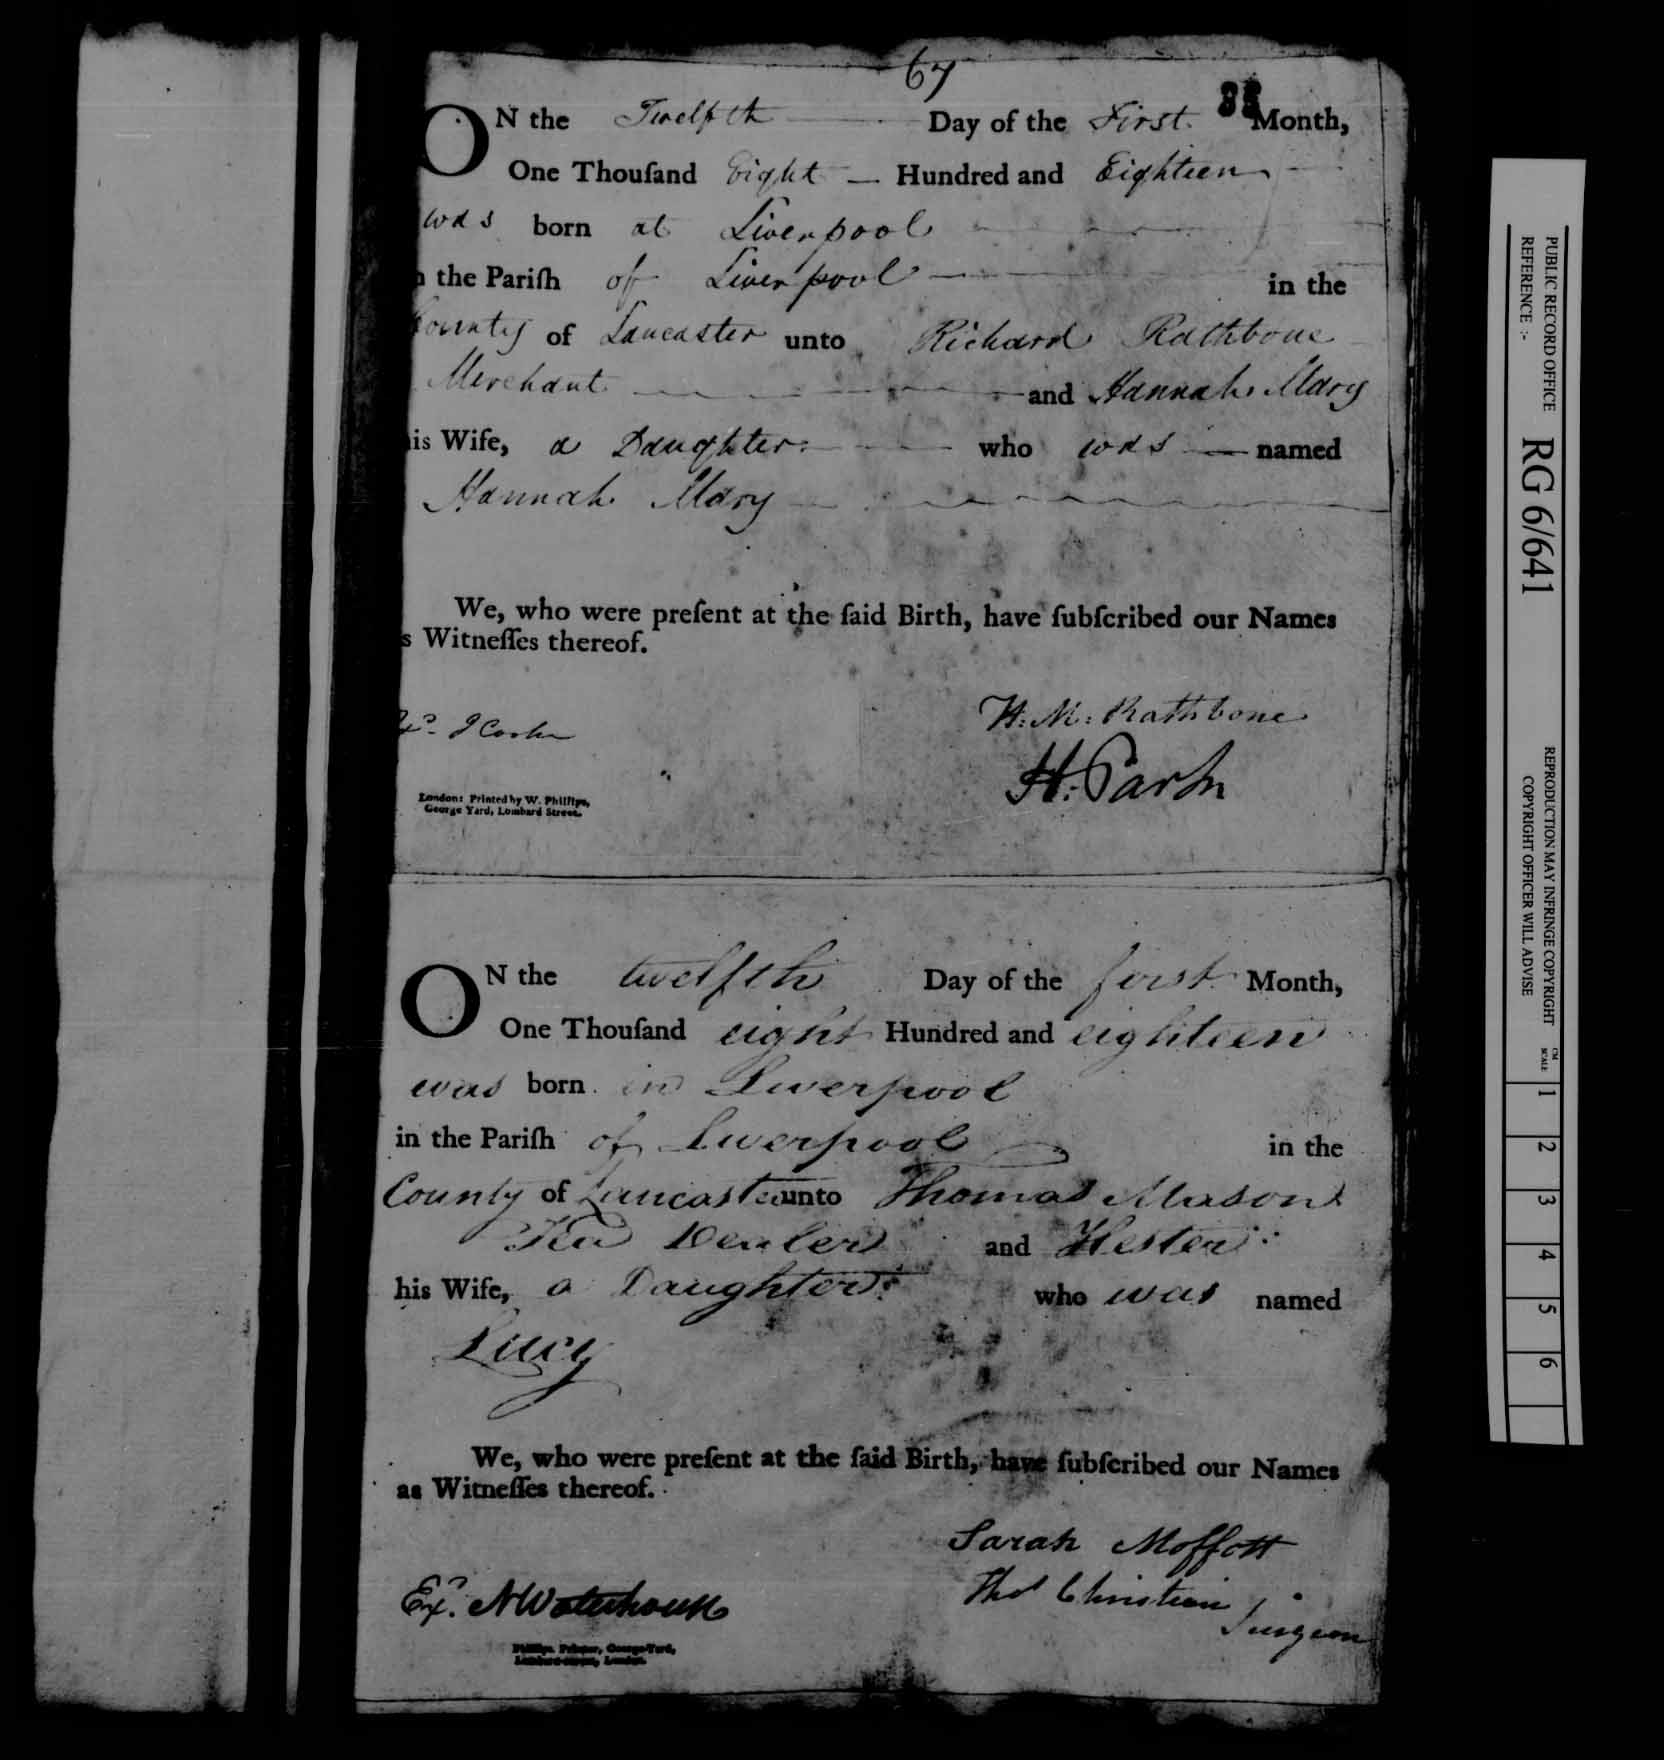 67
ON the Twelfth Day of the First Month,
One Thouſand Eight Hundred and Eighteen
was born at Liverpool
n the Pariſh of Liverpool in the
County of Lancaster unto Richard Rathbone
Merchant and Hannah Mary
is Wife, a Daughter who was named
Hannah Mary
We, who were preſent at the ſaid Birth, have ſubſcribed our Names
s Witneſſes thereof.
H: M: Rathbone
London: Printed by W. Phillips,
George Yard, Lombard Street.
ON the twelfth Day of the first Month,
One Thouſand eight Hundred and eighteen
was born in Liverpool
in the Pariſh of Liverpool in the
County of Lancaster unto Thomas Mason
Tea Dealer and Hester
his Wife, a Daughter who was named
Lucy
We, who were preſent at the ſaid Birth, have ſubſcribed our Names
as Witneſſes thereof.
Sarah Moffott
Thos Christian
Surgeon
Exd. N Waterhouse
Phillips, Printer, George-Yard,
Lombard-street, London.
PUBLIC RECORD OFFICE
REFERENCE :-
RG 6/641
REPRODUCTION MAY INFRINGE COPYRIGHT
COPYRIGHT OFFICER WILL ADVISE
CM
SCALE
1 2 3 4 5 6